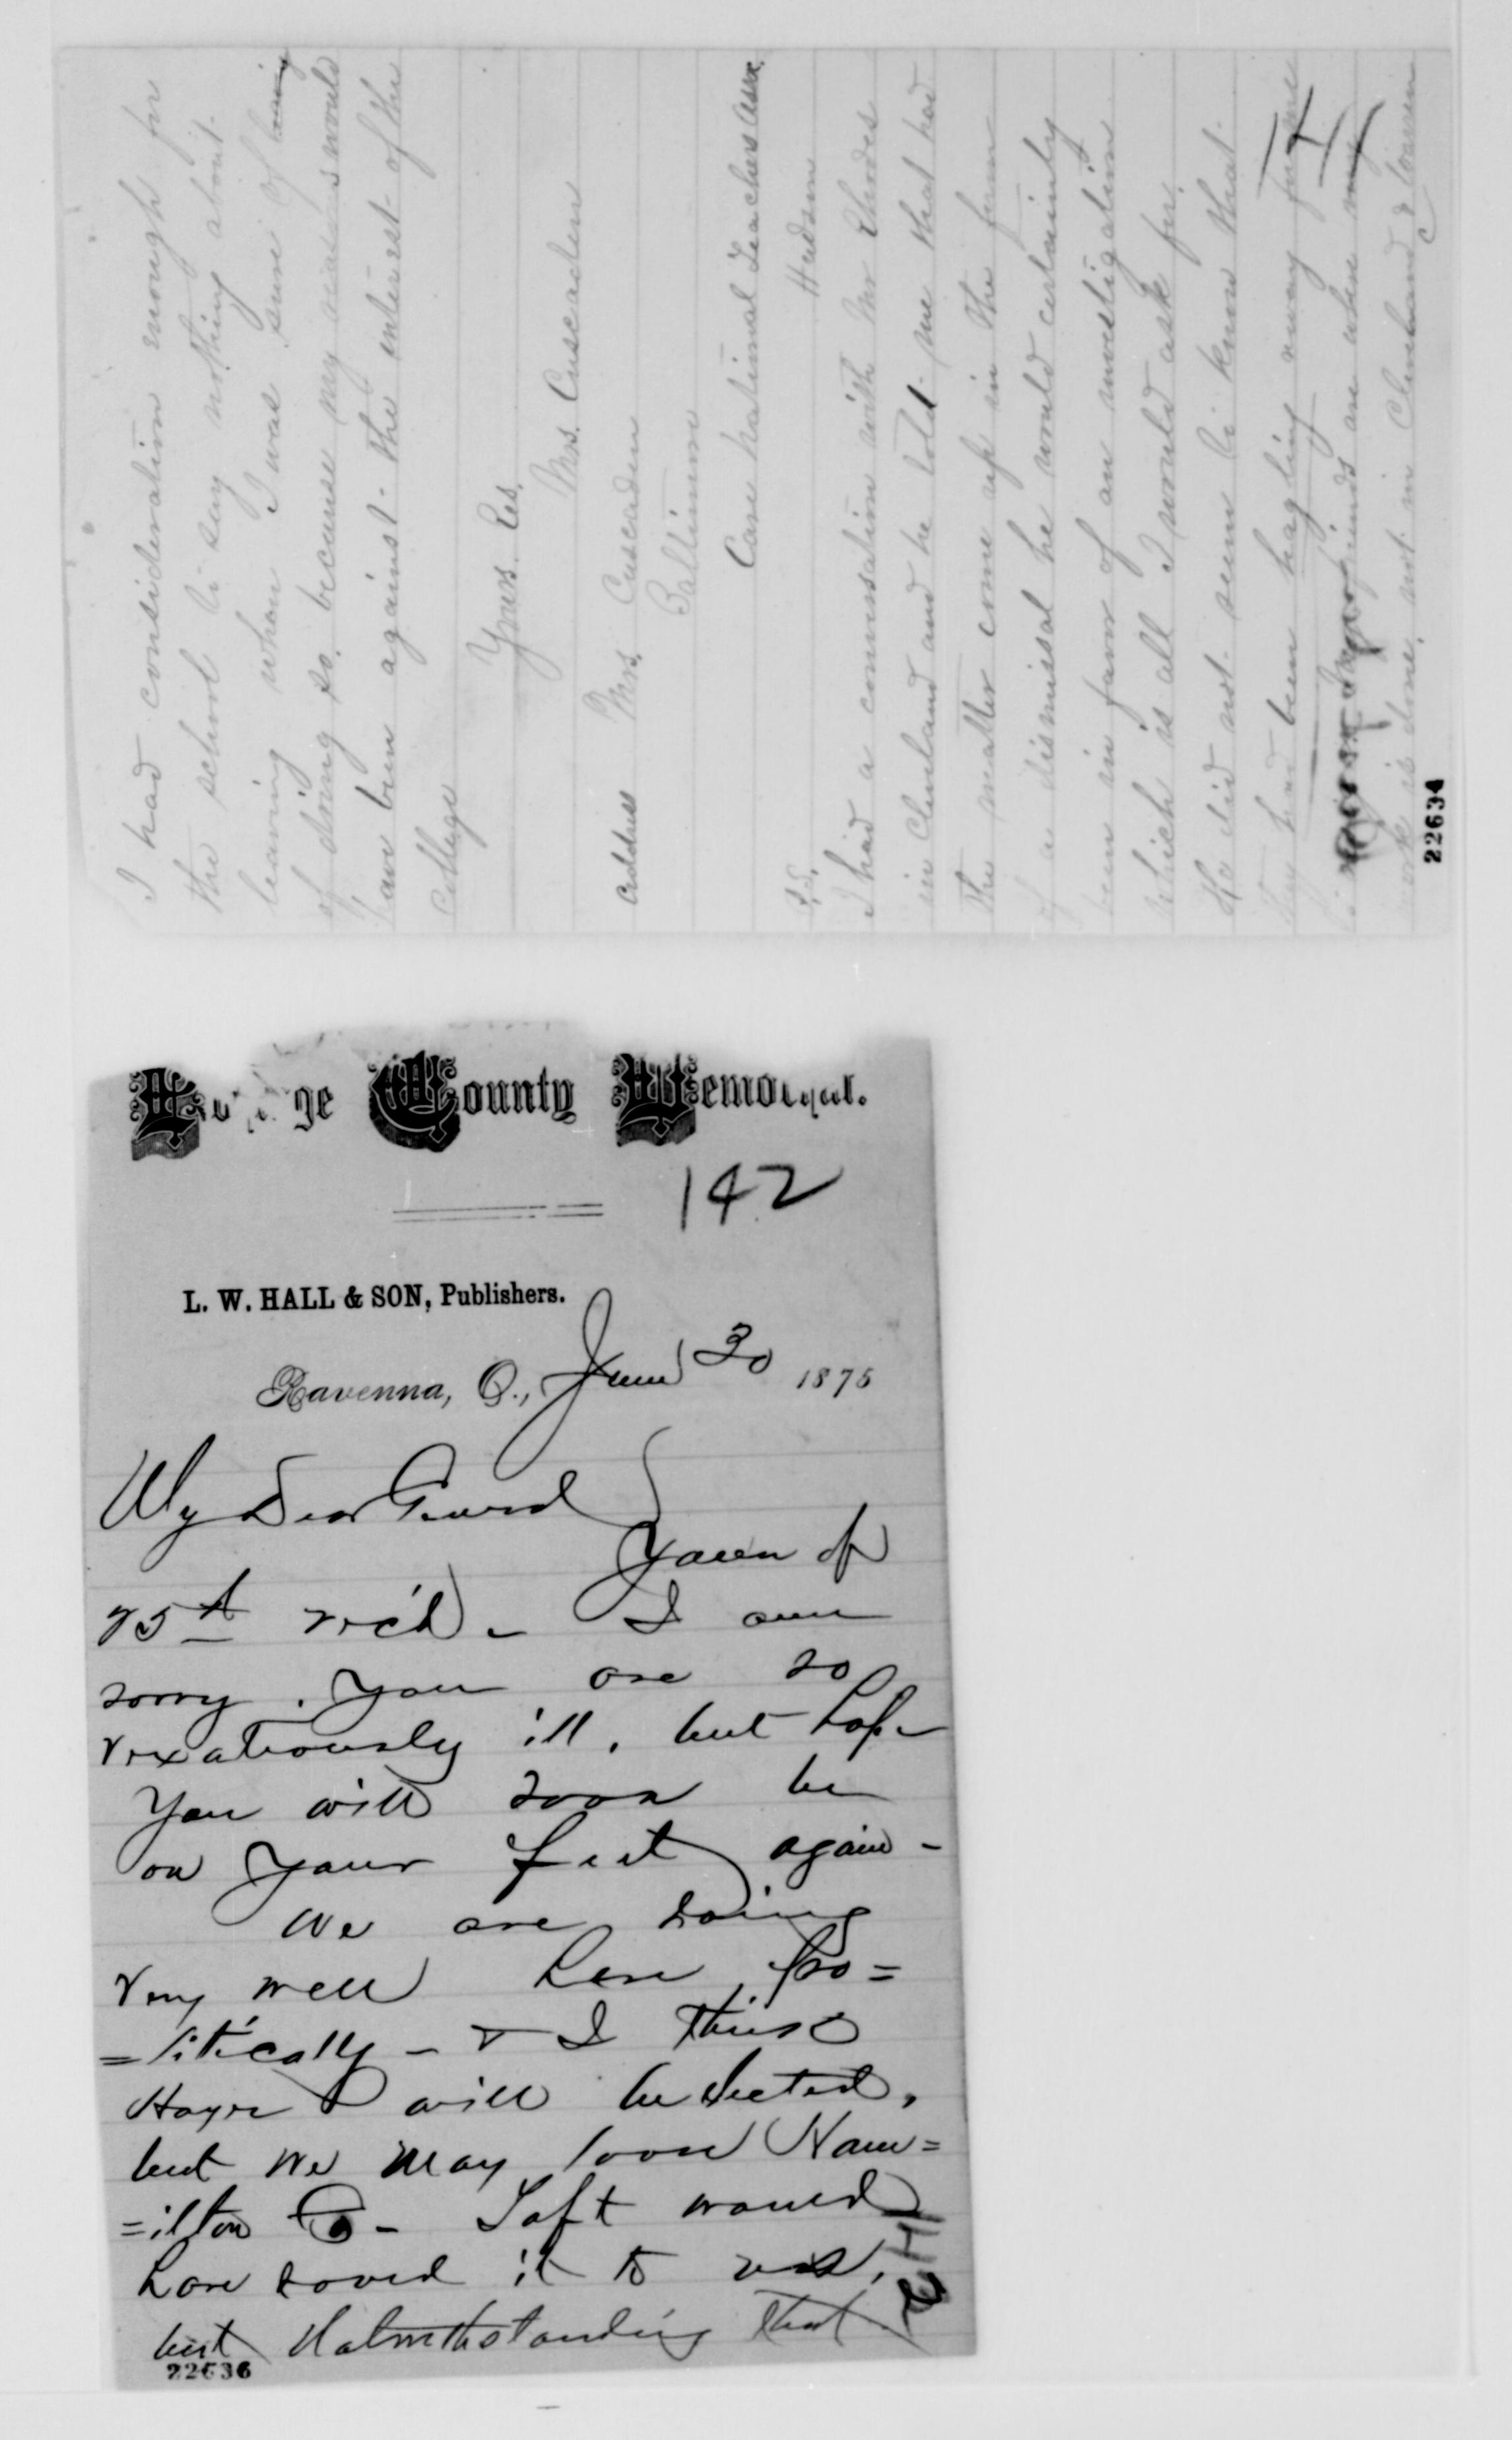 I had consideration enough for
the school to say nothing about
leaving when I was sure of
of doing so, because my reasons would
have been against the interest of the
College
Yours Res.
Mrs. Cuscaden
Address Mrs. Cuscaden
Baltimore
Care National Teachers Assn.
Hudson
P.S.
I had a conversation with Mr Rhodes
in Cleveland and he told me that had
the matter come up in the form
of a dismissal he would certainly
been in favor of an investigation
which is all I would ask for,
He did not seem to know that
they had been hagling away for me
friends are when my
work is done, not in Cleveland &
22634
Portage County Democrat.
142
L. W. HALL & SON, Publishers.
Ravenna, O., June 30 1875
My Dear
Yours of
25th rec'd. - I am
sorry. you are so
vexatiously ill, but hope
you will soon be
on your feet again -
We are doing
very well here, po=
=litically - & I think
Hayes will be elected,
but we may loose Ham=
=ilton Co - Taft would
have saved it to us,
but Notwithstanding that
142
22636